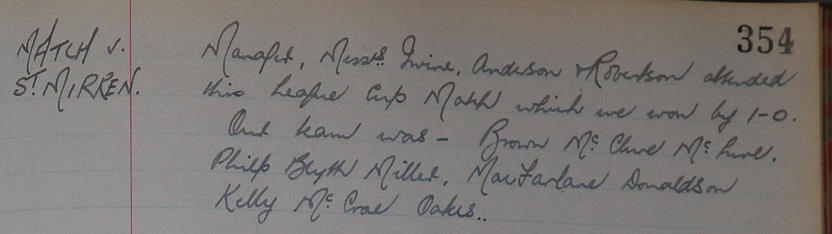 354
MATCH v. Manager, Messrs Irvine, Anderson & Robertson attended
ST MIRREN. this League Cup Match which we won by 1-0.
Our team was - Brown McClure McLure.
Philp Blyth Millar, MacFarlane Donaldson
Kelly McCrae Oakes..